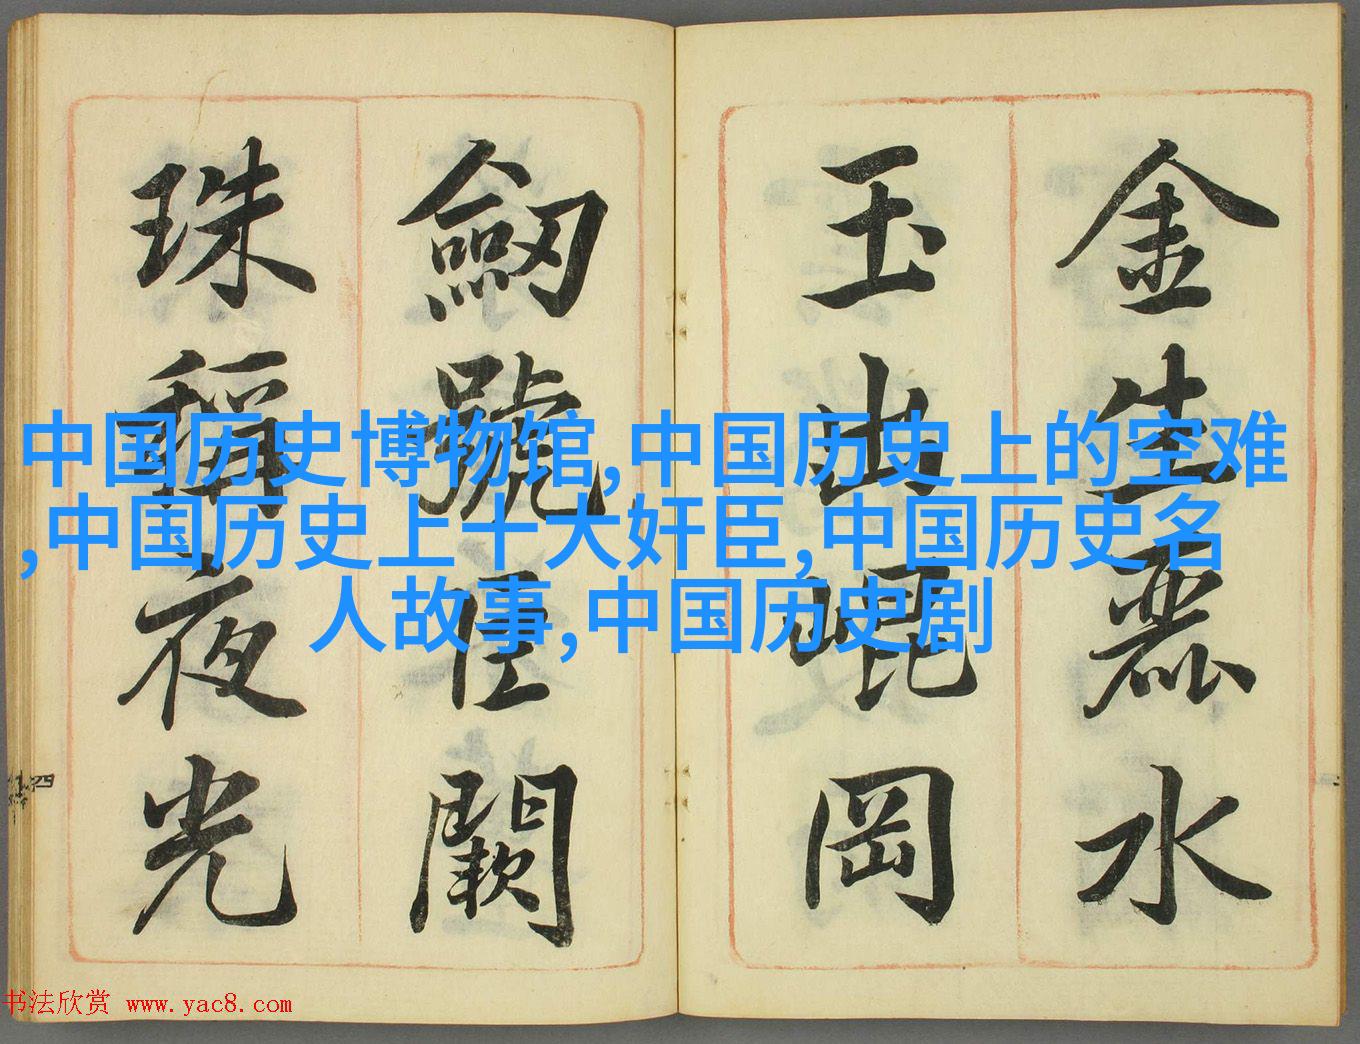 金生麗水
玉出崐岡
劒號巨闕
珠稱夜光
中国历史博物馆,中国历史上的空难
,中国历史上十大奸臣,中国历史名
人故事,中国历史剧
四
书法欣赏 www.yac8.com